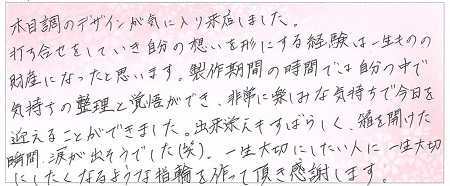 木目調のデザインが気に入り来店しました。
打ち合せをしていき自分の想いを形にする経験は一生ものの
財産になったと思います。製作期間の時間では自分の中で
気持ちの整理と覚悟ができ、非常に楽しみな気持ちで今日を
迎えることができました。出来栄えもすばらしく、箱を開けた
瞬間、涙が出そうでした(笑)。一生大切にしたい人に一生大切
にしたくなるような指輪を作って頂き感謝します。